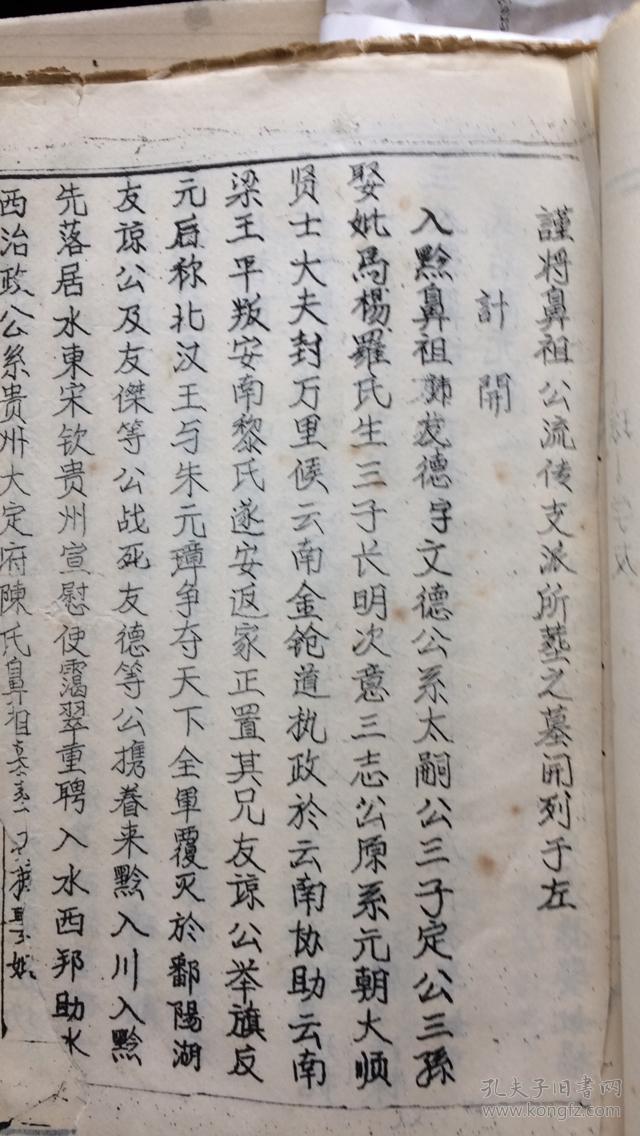 謹将鼻祖公流传支派所塟之墓開列于左
計開
入黔鼻祖諱友德字文德公系太嗣公三子定公三孫
娶妣馬楊羅氏生三子长明次意三志公原系元朝大顺
贤士大夫封万里候云南金铯道执政於云南协助云南
梁王平叛安南黎氏遂安返家正置其兄友谅公举旗反
元后称北汉王与朱元璋争夺天下全軍覆灭於鄱陽湖
友谅公及友傑等公战死友德等公携眷来黔入川入黔
先落居水東宋钦贵州宣慰使靄翠重聘入水西邦助水
西治政公系贵州大定府陳氏鼻祖
孔夫子旧书网
www.kongfz.com